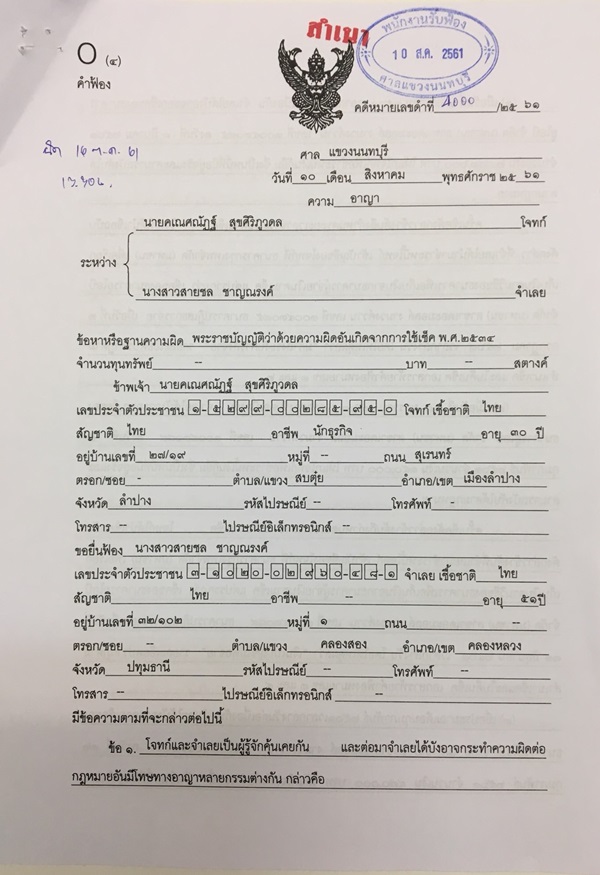 สำเนา
พนักงานรับฟ้อง
10 ส.ค. 2561
ศาลแขวงนนทบุรี
O (๔)
คำฟ้อง
คดีหมายเลขดำที่ /๒๕ ๖๑
ศาล แขวงนนทบุรี
วันที่ ๑๐ เดือน สิงหาคม พุทธศักราช ๒๕ ๖๑
ความ อาญา
นายคเณศณัฏฐ์ สุขศิริภูวดล โจทก์
ระหว่าง
นางสาวสายชล ชาญณรงค์ จำเลย
ข้อหาหรือฐานความผิด พระราชบัญญัติว่าด้วยความผิดอันเกิดจากการใช้เช็ค พ.ศ.๒๕๓๔
จำนวนทุนทรัพย์ -- บาท -- สตางค์
ข้าพเจ้า นายคเณศณัฏฐ์ สุขศิริภูวดล
เลขประจำตัวประชาชน ๑-๕๒๙๙-๐๐๒๘๕-๙๕-๐ โจทก์ เชื้อชาติ ไทย
สัญชาติ ไทย อาชีพ นักธุรกิจ อายุ ๓๐ ปี
อยู่บ้านเลขที่ ๒๗/๑๙ หมู่ที่ -- ถนน สุเรนทร์
ตรอก/ซอย - ตำบล/แขวง สบตุ๋ย อำเภอ/เขต เมืองลำปาง
จังหวัด ลำปาง รหัสไปรษณีย์ -- โทรศัพท์ -
โทรสาร -- ไปรษณีย์อิเล็กทรอนิกส์ --
ขอยื่นฟ้อง นางสาวสายชล ชาญณรงค์
เลขประจำตัวประชาชน ๓-๑๐๒๐-๐๒๙๖๐-๔๘-๑ จำเลย เชื้อชาติ ไทย
สัญชาติ ไทย อาชีพ -- อายุ ๕๑ปี
อยู่บ้านเลขที่ ๓๒/๑๐๒ หมู่ที่ ๑ ถนน --
ตรอก/ซอย -- ตำบล/แขวง คลองสอง อำเภอ/เขต คลองหลวง
จังหวัด ปทุมธานี รหัสไปรษณีย์ -- โทรศัพท์ --
โทรสาร -- ไปรษณีย์อิเล็กทรอนิกส์ --
มีข้อความตามที่จะกล่าวต่อไปนี้
ข้อ ๑. โจทก์และจำเลยเป็นผู้รู้จักคุ้นเคยกัน และต่อมาจำเลยได้บังอาจกระทำความผิดต่อ
กฎหมายอันมีโทษทางอาญาหลายกรรมต่างกัน กล่าวคือ